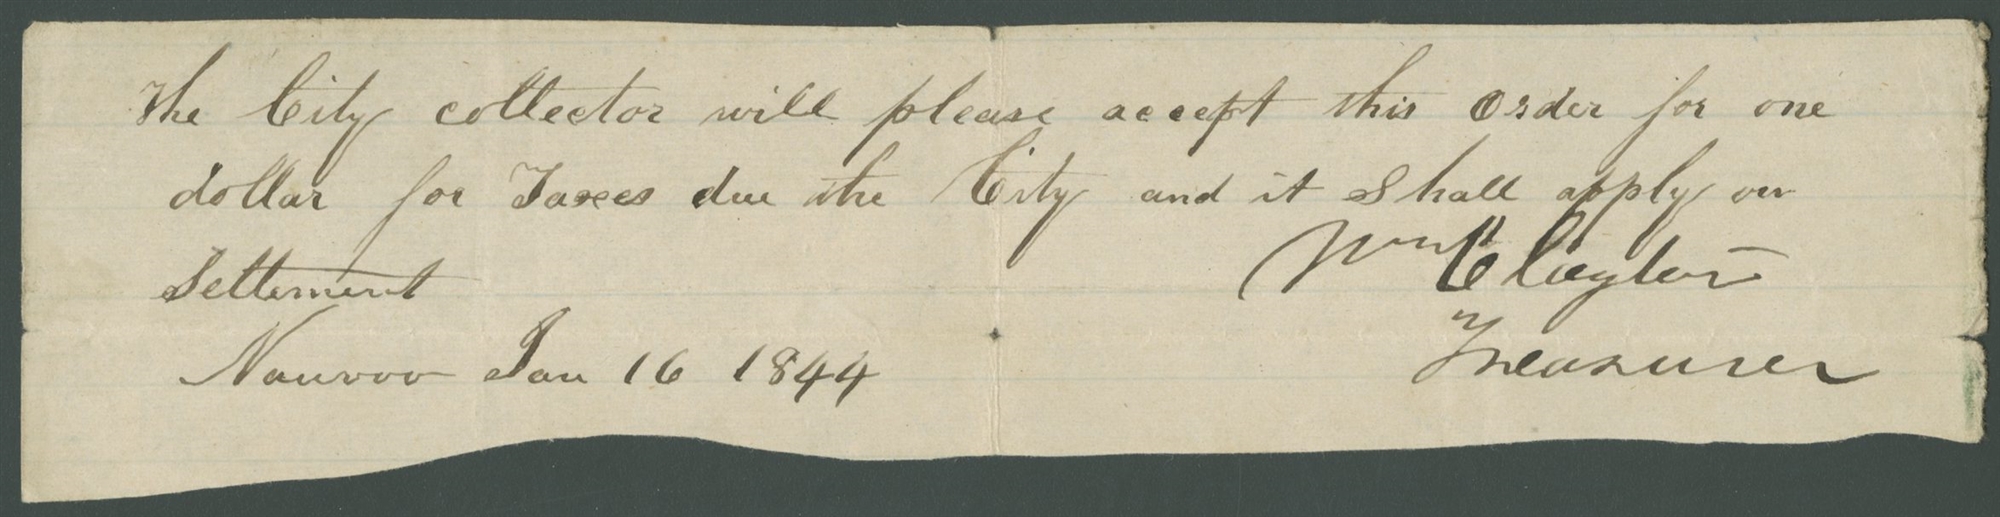 The City collector will please accept this Order for one
dollar for Taxes due the City and it shall apply on
Settlement
Wm Clayton
Treasurer
Nauvoo Jan 16 1844